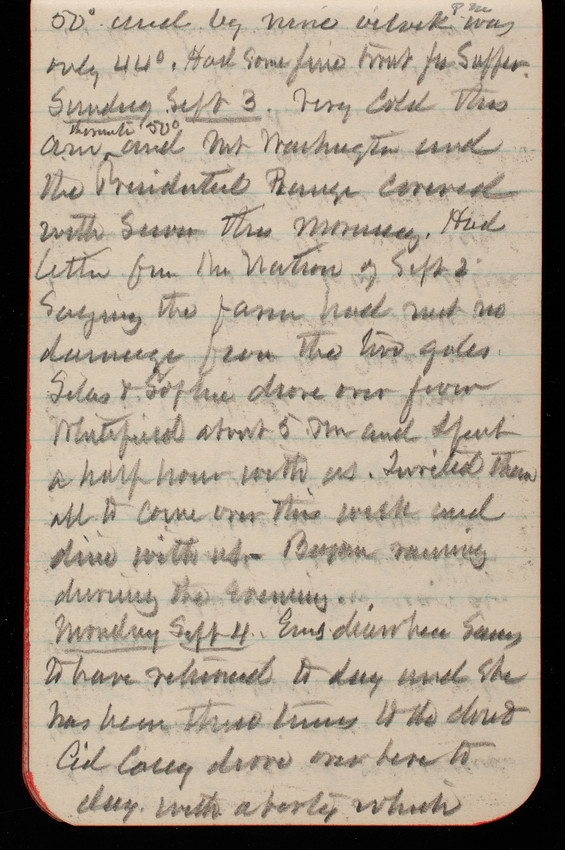 50° and by nine o'clock P M was
only 44°. Had some fine trout for supper.
Sunday Sept 3. Very cold this
am thermo 50° and Mt Washington and
the Presidential Range covered
with snow this morning. Had
letter from of Sept 2
saying the farm had met no
damage from the two gales.
Silas & Sophie drove over from
Whitefield about 5 PM and spent
a half hour with us. Invited them
all to come over this week and
dine with us - Began raining
during the evening.
Monday Sept 4. Ems diarrhea seems
to have returned to day and she
has been three times to the
Cid Casey drove over here to
day with a party which